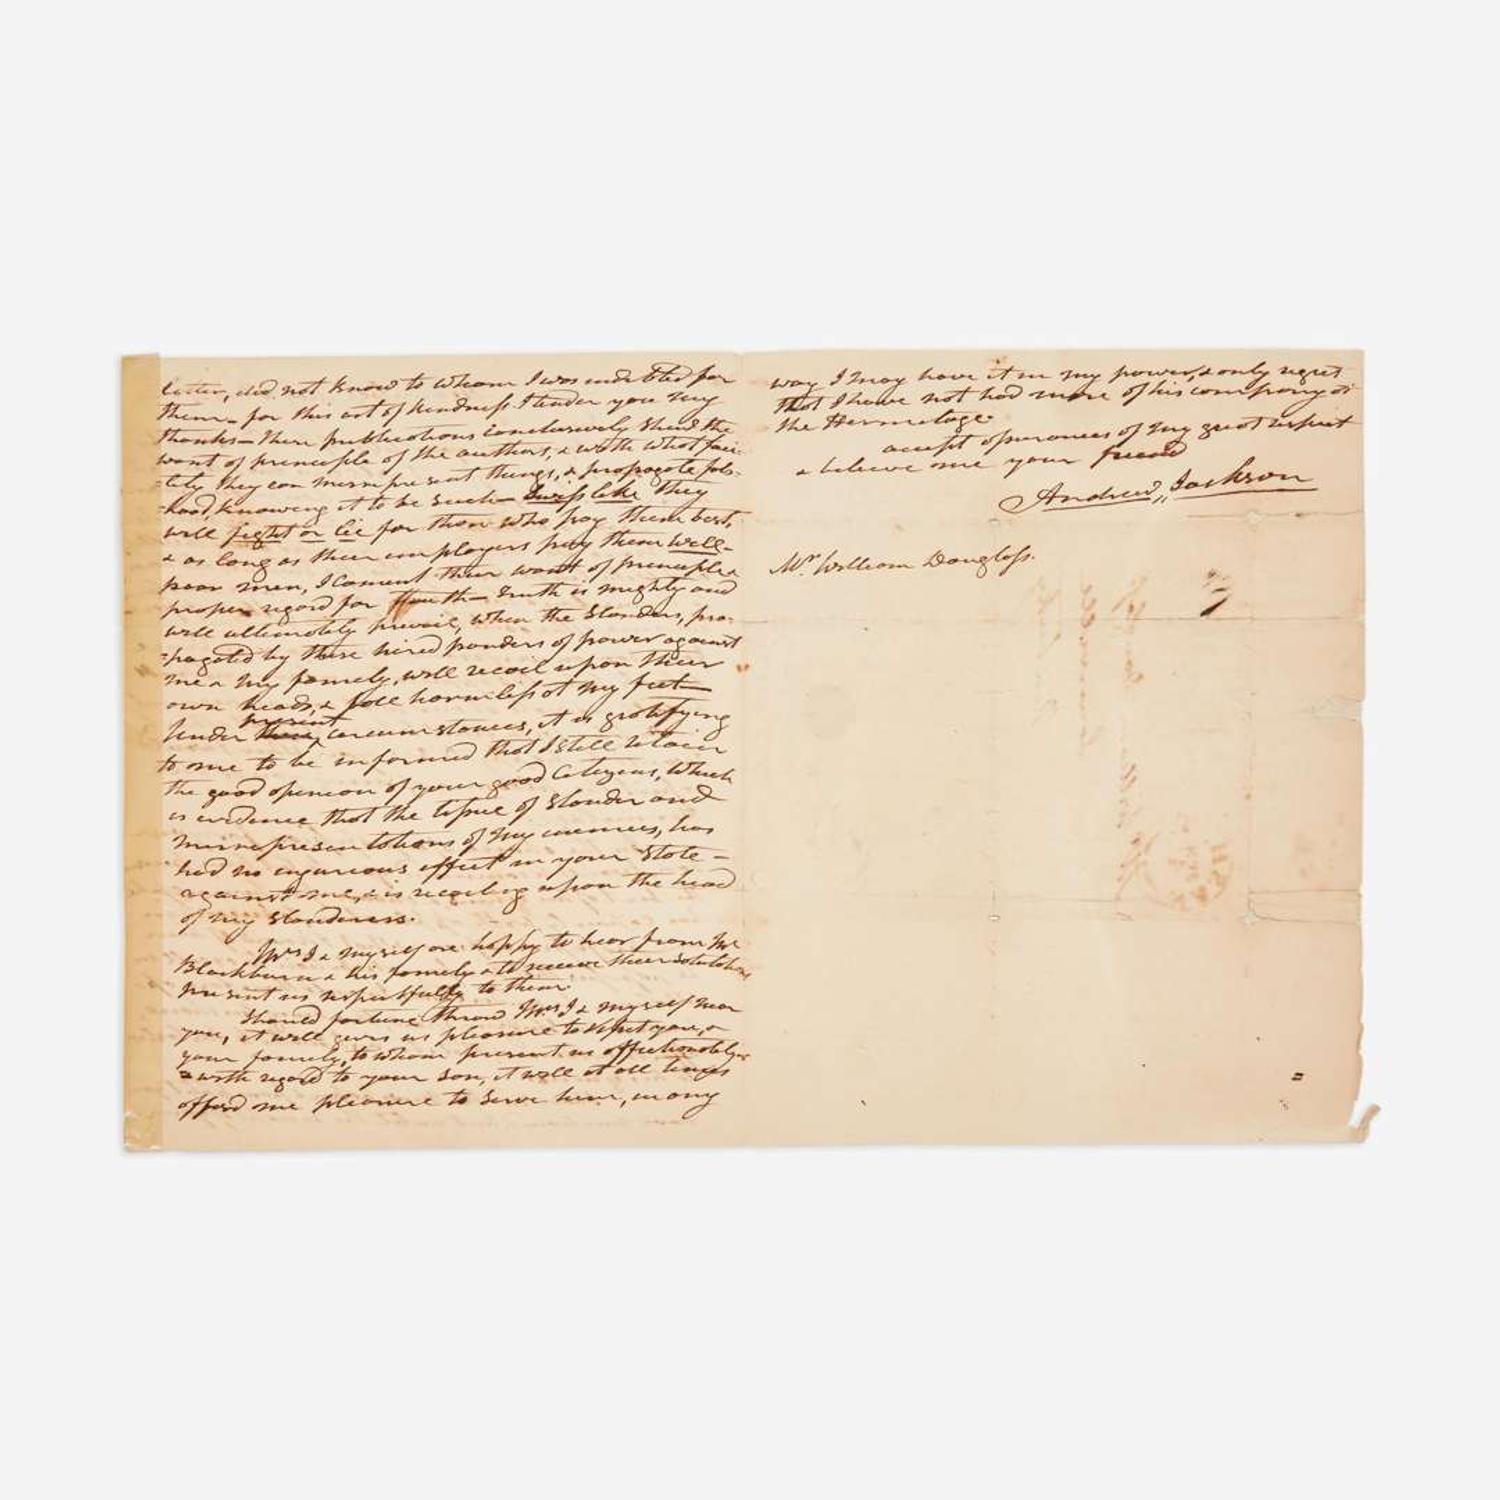 letter, did not know to whom I was indebted for
them - for this act of kindness I tender you my
thanks - These publications conclusively shew the
want of principle of the authors, & with what faci-
-lity they can misrepresent things, & propagate fals-
-hood, knowing it to be such - Swiss like they
will fight or lie for those who pay them best,
& as long as their employers pay them well -
poor men, I lament their want of principle &
proper regard for truth - Truth is mighty and
will ultimately prevail, when the slanders, pro-
-pagated by these hired panders of power against
me & my family, will recoil upon their
own heads, & fall harmless at my feet -
present
Under these circumstances, it is gratifying
to me to be informed that I still retain
the good opinion of your good Citizens, which
is evidence that the tissue of slander and
misrepresentations of my enemies, has
had no injurious effect in your State -
against me, & is recoiling upon the head
of my slanderers.
Mrs J & myself are happy to hear from Mr
Blackburn & his family & to receive their salutations
present us respectfully to them.
Should fortune throw Mrs J & myself near
you, it will give us pleasure to visit you, &
your family, to whom present us affectionately
& with regard to your son, it will at all times
afford me pleasure to serve him, in any
way I may have it in my power, & only regret
that I have not had more of his company at
the Hermitage.
accept assurances of my great respect
& believe me your friend
Andrew Jackson
Mr. William Douglass.